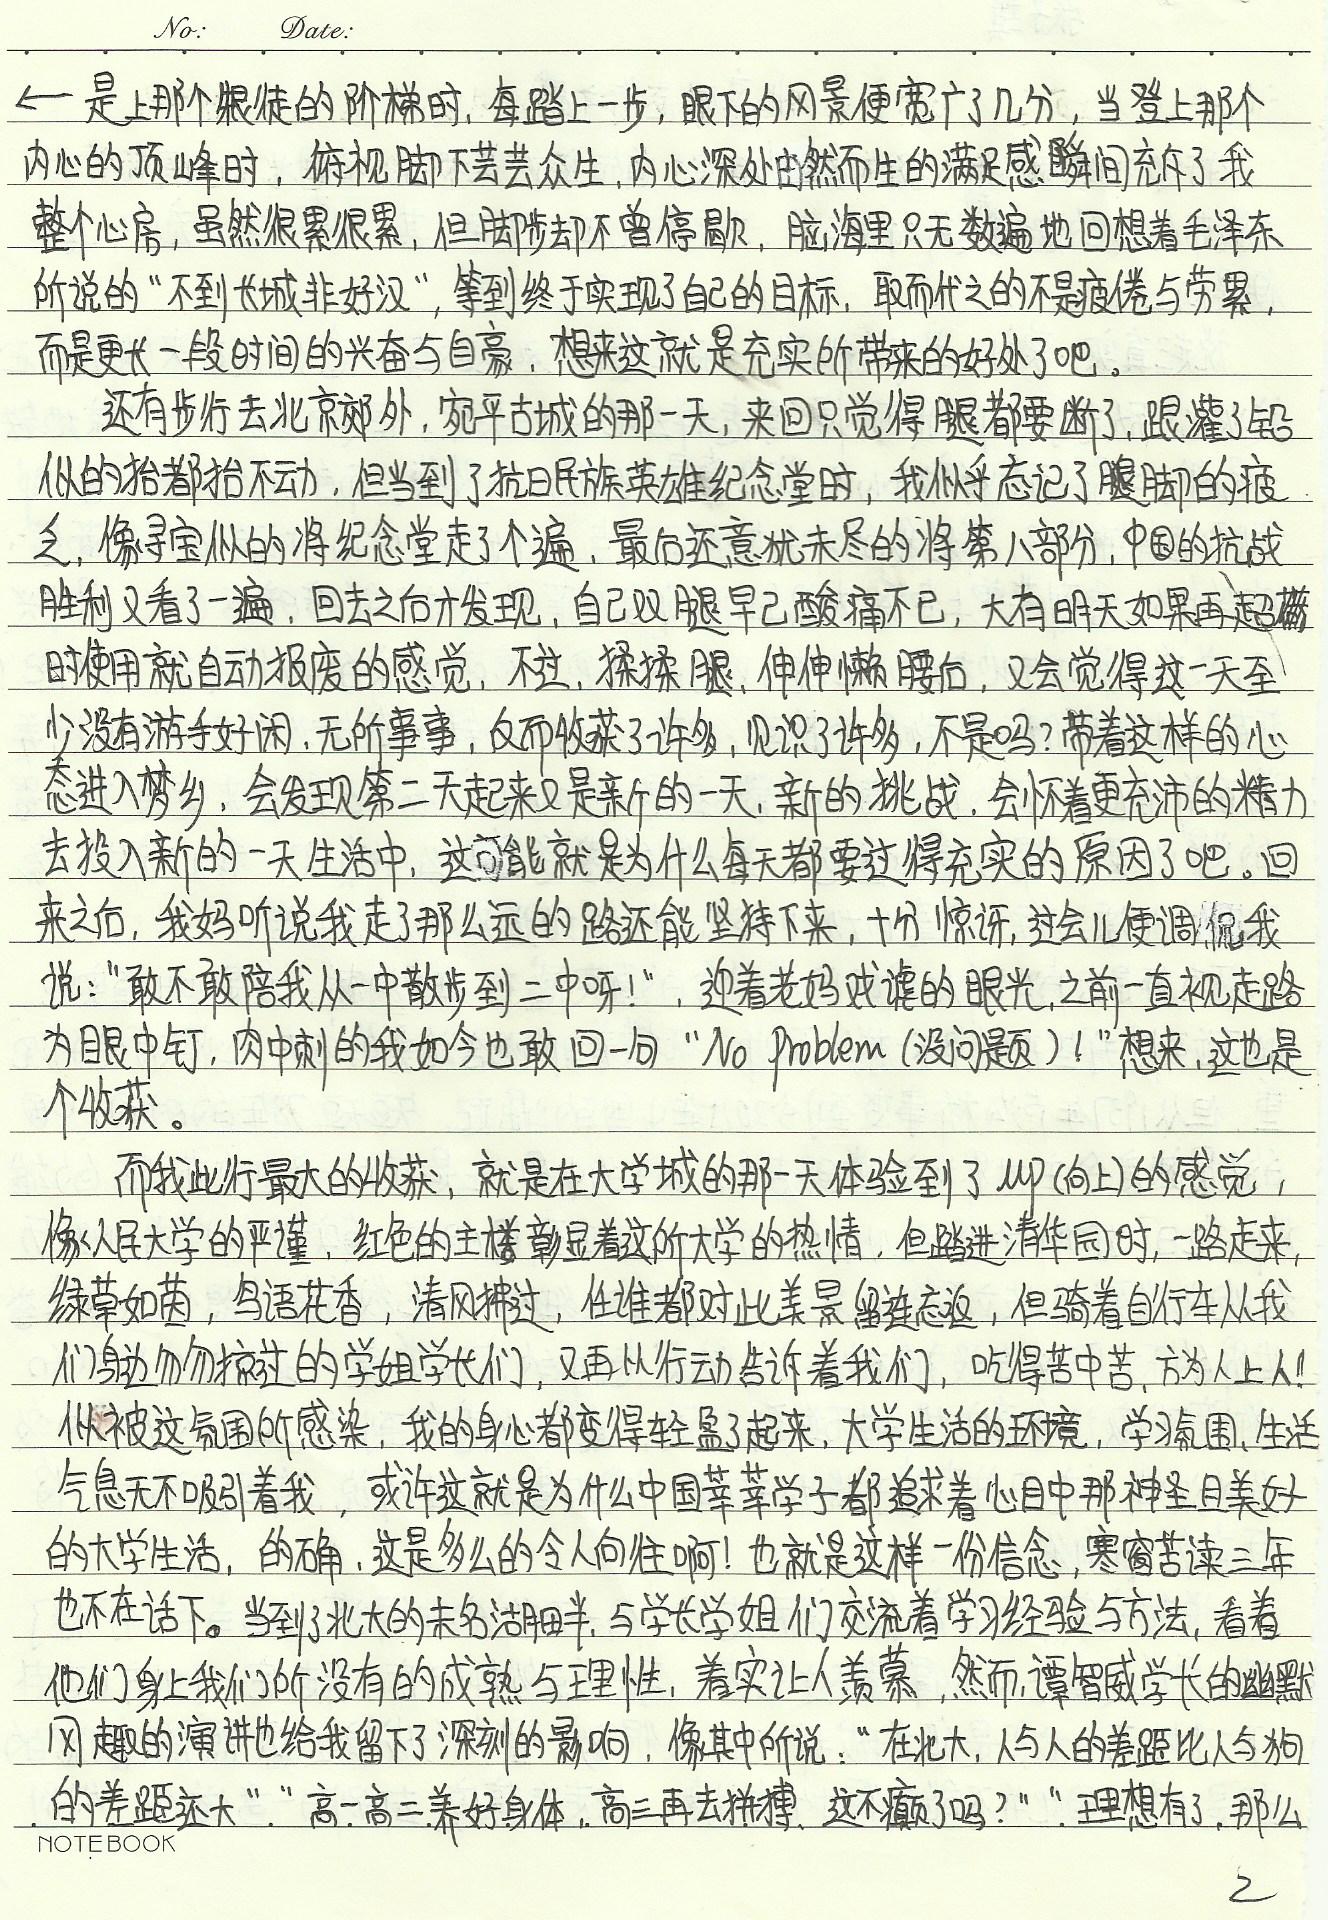 No: Date:
← 是上那个狠徒的阶梯时,每踏上一步,眼下的风景便宽广了几分,当登上那个
内心的顶峰时,俯视脚下芸芸众生,内心深处由然而生的满足感瞬间充斥了我
整个心房,虽然很累很累,但脚步却不曾停歇,脑海里只无数遍地回想着毛泽东
所说的“不到长城非好汉”,等到终于实现了自己的目标,取而代之的不是疲倦与劳累,
而是更长一段时间的兴奋与自豪,想来这就是充实所带来的好处了吧。
还有步行去北京郊外,宛平古城的那一天,来回只觉得腿都要断了,跟灌了铅
似的抬都抬不动,但当到了抗日民族英雄纪念堂时,我似乎忘记了腿脚的疲
乏,像寻宝似的将纪念堂走了个遍,最后还意犹未尽的将第八部分,中国的抗战
胜利又看了一遍,回去之后才发现,自己双腿早已酸痛不已,大有明天如果再超
时使用就自动报废的感觉,不过,揉揉腿、伸伸懒腰后,又会觉得这一天至
少没有游手好闲,无所事事,反而收获了许多,见识了许多,不是吗?带着这样的心
态进入梦乡,会发现第二天起来又是新的一天,新的挑战,会怀着更充沛的精力
去投入新的一天生活中,这可能就是为什么每天都要过得充实的原因了吧。回
来之后,我妈听说我走了那么远的路还能坚持下来,十分惊讶,过会儿便调侃我
说:“敢不敢陪我从一中散步到二中呀!”,迎着老妈戏谑的眼光,之前一直视走路
为眼中钉,肉中刺的我如今也敢回一句“No problem(没问题)!”想来,这也是
个收获。
而我此行最大的收获,就是在大学城的那一天体验到了up(向上)的感觉,
像人民大学的严谨,红色的主楼彰显着这所大学的热情,但踏进清华园时,一路走来,
绿草如茵,鸟语花香,清风拂过,任谁都对此美景留连忘返,但骑着自行车从我
们身边匆匆掠过的学姐学长们,又再从行动告诉着我们,吃得苦中苦,方为人上人!
似被这氛围所感染,我的身心都变得轻盈了起来,大学生活的环境,学习氛围、生活
气息无不吸引着我,或许这就是为什么中国莘莘学子都追求着心目中那神圣且美好
的大学生活,的确,这是多么的令人向往啊!也就是这样一份信念,寒窗苦读三年
也不在话下。当到了北大的未名湖畔,与学长学姐们交流着学习经验与方法,看着
他们身上我们所没有的成熟与理性,着实让人羡慕,然而,谭智威学长的幽默
风趣的演讲也给我留下了深刻的影响,像其中所说:“在北大,人与人的差距比人与狗
的差距还大”“高一高二养好身体,高三再去拼搏,这不癫了吗?”“理想有了,那么
NOTEBOOK
2